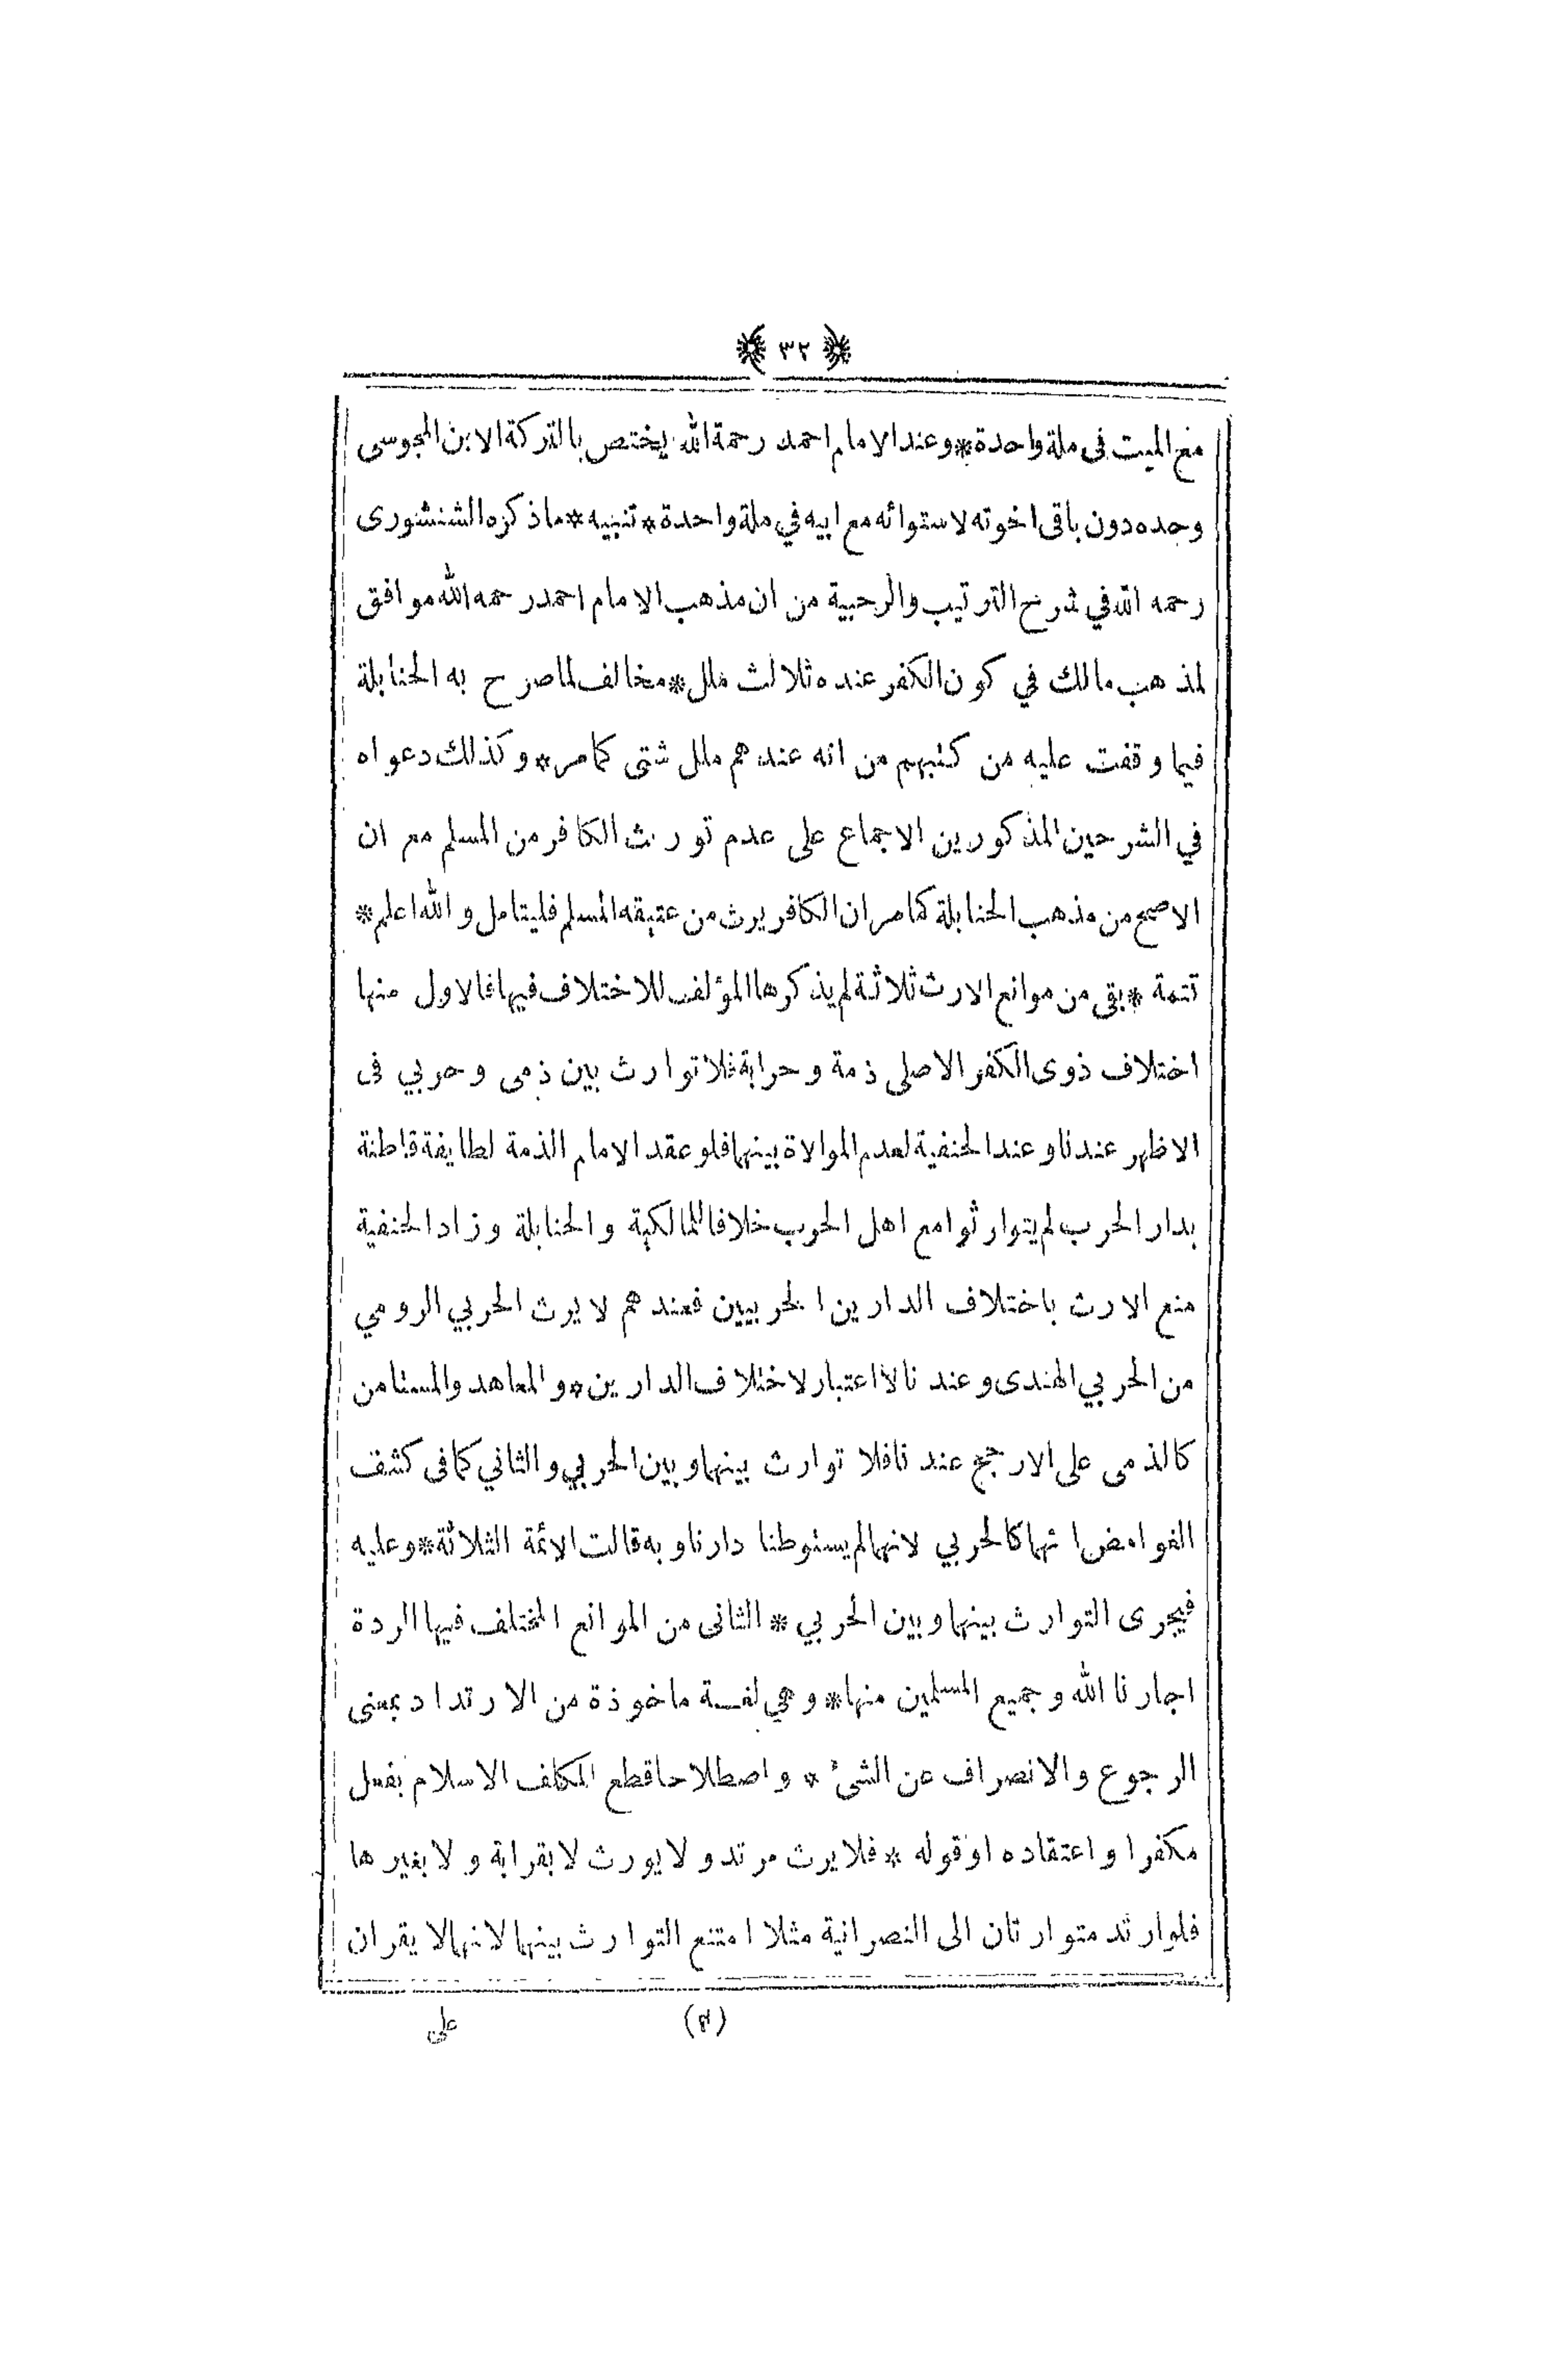 ﴿ ٣٢ ﴾
مع الميت فى ملة واحدة * وعند الامام احمد رحمة الله يختص بالتركة الابن المجوسى
وحده دون باقى اخوته لاستوائه مع ابيه في ملة واحدة * تنبيه * ماذكره الشنشورى
رحمه الله في شرح الترتيب والرحبية من ان مذهب الامام احمد رحمه الله موافق
لمذهب مالك في كون الكفر عنده ثلاث ملل * مخالف لماصرح به الحنابلة
فيما وقفت عليه من كتبهم من انه عندهم ملل شتى كمامر * وكذلك دعواه
في الشرحين المذكورين الاجماع على عدم تورث الكافر من المسلم مع ان
الاصح من مذهب الحنابلة كمامر ان الكافر يرث من عتيقه المسلم فليتامل والله اعلم *
تتمة * بقى من موانع الارث ثلاثة لم يذكرها المؤلف للاختلاف فيها فالاول منها
اختلاف ذوى الكفر الاصلى ذمة وحرابة فلاتوارث بين ذمى وحربي فى
الاظهر عندنا وعند الحنفية لعدم الموالاة بينهما فلو عقد الامام الذمة لطايفة قاطنة
بدار الحرب لم يتوارثوا مع اهل الحرب خلافا للمالكية والحنابلة وزاد الحنفية
منع الارث باختلاف الدارين الحربيين فعندهم لا يرث الحربي الرومي
من الحربي الهندى وعندنا لا اعتبار لاختلاف الدارين * والمعاهد والمستامن
كالذمى على الارجح عندنا فلا توارث بينهما وبين الحربي والثاني كمافى كشف
الغوامض انهما كالحربي لانهما لم يستوطنا دارنا وبه قالت الائمة الثلاثة * وعليه
فيجرى التوارث بينهما وبين الحربي * الثانى من الموانع المختلف فيها الردة
اجارنا الله وجميع المسلمين منها * وهي لغة ماخوذة من الارتداد بمعنى
الرجوع والانصراف عن الشئ * واصطلاحا قطع المكلف الاسلام بفعل
مكفرا واعتقاده اوقوله * فلايرث مرتد ولايورث لابقرابة ولابغيرها
فلوارتد متوارثان الى النصرانية مثلا امتنع التوارث بينهما لانهما لايقران
(٤) على